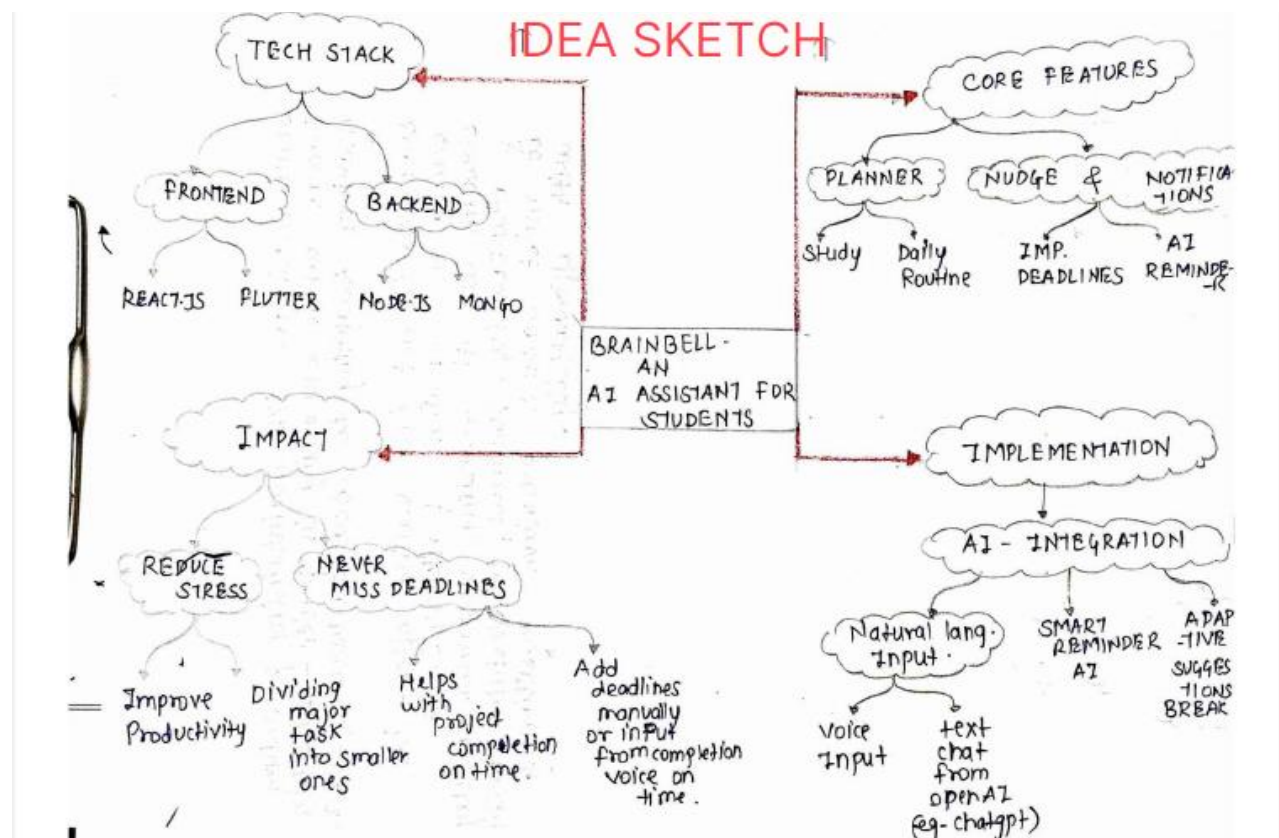 IDEA SKETCH
TECH STACK
FRONTEND
BACKEND
REACT-JS
FLUTTER
NODE-JS
MONGO
CORE FEATURES
PLANNER
NUDGE & NOTIFICA
-TIONS
Study
Daily
Routine
IMP.
DEADLINES
AI
REMINDE-
-R
BRAINBELL-
AN
AI ASSISTANT FOR
STUDENTS
IMPACT
REDUCE
STRESS
NEVER
MISS DEADLINES
Improve
Productivity
Dividing
major
task
into smaller
ones
Helps
with
project
completion
on time.
Add
deadlines
manually
or input
from completion
voice on
time.
IMPLEMENTATION
AI - INTEGRATION
Natural lang.
Input.
SMART
REMINDER
AI
ADAP
-TIVE
SUGGES
TIONS
BREAK
Voice
Input
text
chat
from
openAI
(eg- chatgpt)